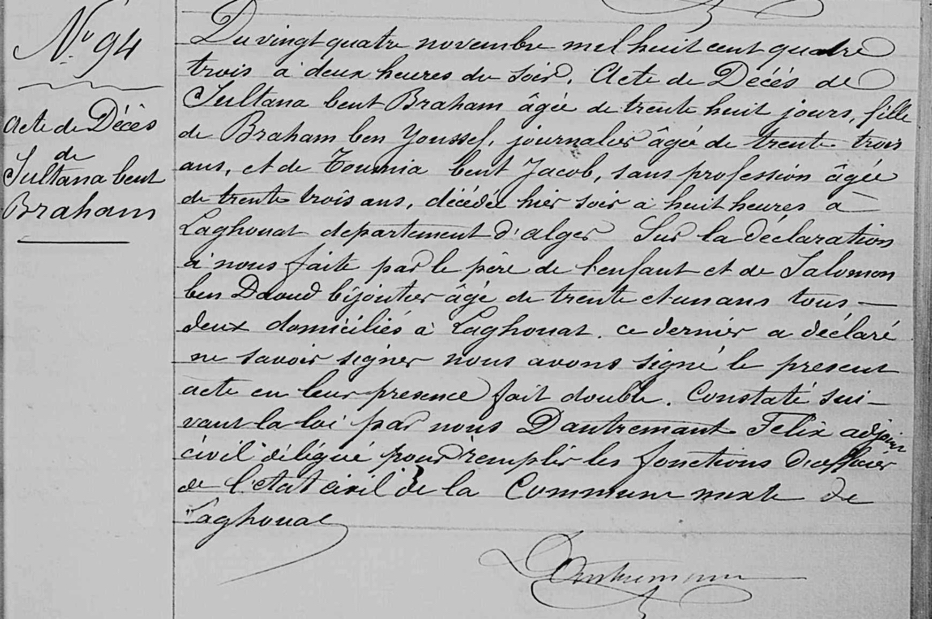 N° 94
Acte de Décès
de
Sultana bent
Braham
Du vingt quatre novembre mil huit cent quatre
trois à deux heures du soir. Acte de Décès de
Sultana bent Braham âgée de trente huit jours, fille
de Braham ben Youssef, journalier âgé de trente trois
ans, et de Toumia bent Jacob, sans profession âgée
de trente trois ans, décédée hier soir à huit heures à
Laghouat departement d'alger Sur la déclaration
à nous faite par le père de l'enfant et de Salomon
ben Daoud bijoutier âgé de trente et un ans tous
deux domiciliés à Laghouat. ce dernier a déclaré
ne savoir signer nous avons signé le present
acte en leur presence fait double. Constaté sui-
vant la loi par nous Dautremant Felix adjoint
civil délégué pour remplir les fonctions d'officier
de l'état civil de la Commune mixte de
Laghouat